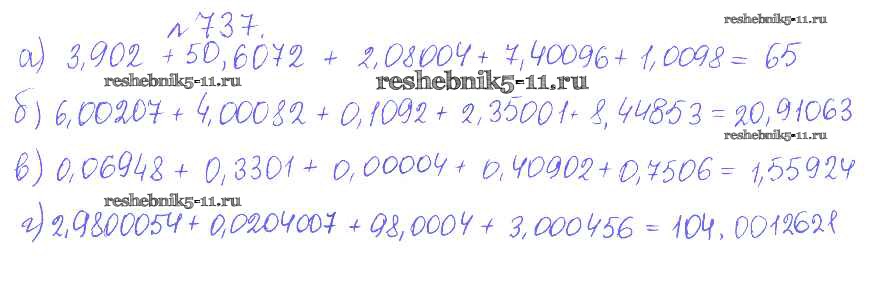 reshebnik5-11.ru
№737.
а) 3,902 + 50,6072 + 2,08004 + 7,40096 + 1,0098 = 65
reshebnik5-11.ru reshebnik5-11.ru
б) 6,00207 + 4,00082 + 0,1092 + 2,35001 + 8,44853 = 20,91063
reshebnik5-11.ru
в) 0,06948 + 0,3301 + 0,00004 + 0,40902 + 0,7506 = 1,55924
reshebnik5-11.ru
г) 2,9800054 + 0,0204007 + 98,0004 + 3,000456 = 104,0012621